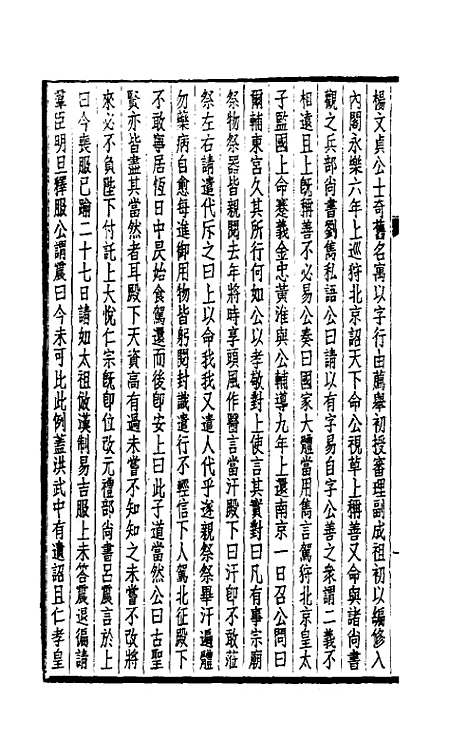 楊文貞公士奇舊名寓以字行由薦舉初授審理副成祖初以編修入
內閣永樂六年上巡狩北京詔天下命公視草上稱善又命與諸尚書
觀之兵部尚書劉雋私語公曰請以有字易自字公善之衆謂二義不
相遠且上旣稱善不必易公奏曰國家大體當用雋言駕狩北京皇太
子監國上命蹇義金忠黃淮與公輔導九年上還南京一日召公問曰
爾輔東宮久其所行何如公以孝敬對上使言其實對曰凡有事宗廟
祭物祭器皆親閱去年將時享頭風作醫言當汗殿下曰汗卽不敢蒞
祭左右請遣代斥之曰上以命我我又遣人代乎遂親祭祭畢汗遍體
勿藥病自愈每進御用物皆躬閱封識遣行不輕信下人駕北征殿下
不敢寧居恆日中昃始食駕還而後卽安上曰此子道當然公曰古聖
賢亦皆盡其當然者耳殿下天資高有過未嘗不知知之未嘗不改將
來必不負陛下付託上大悅仁宗旣卽位改元禮部尚書呂震言於上
曰今喪服已踰二十七日請如太祖倣漢制易吉服上未答震退徧請
羣臣明旦釋服公謂震曰今未可比此例蓋洪武中有遺詔且仁孝皇